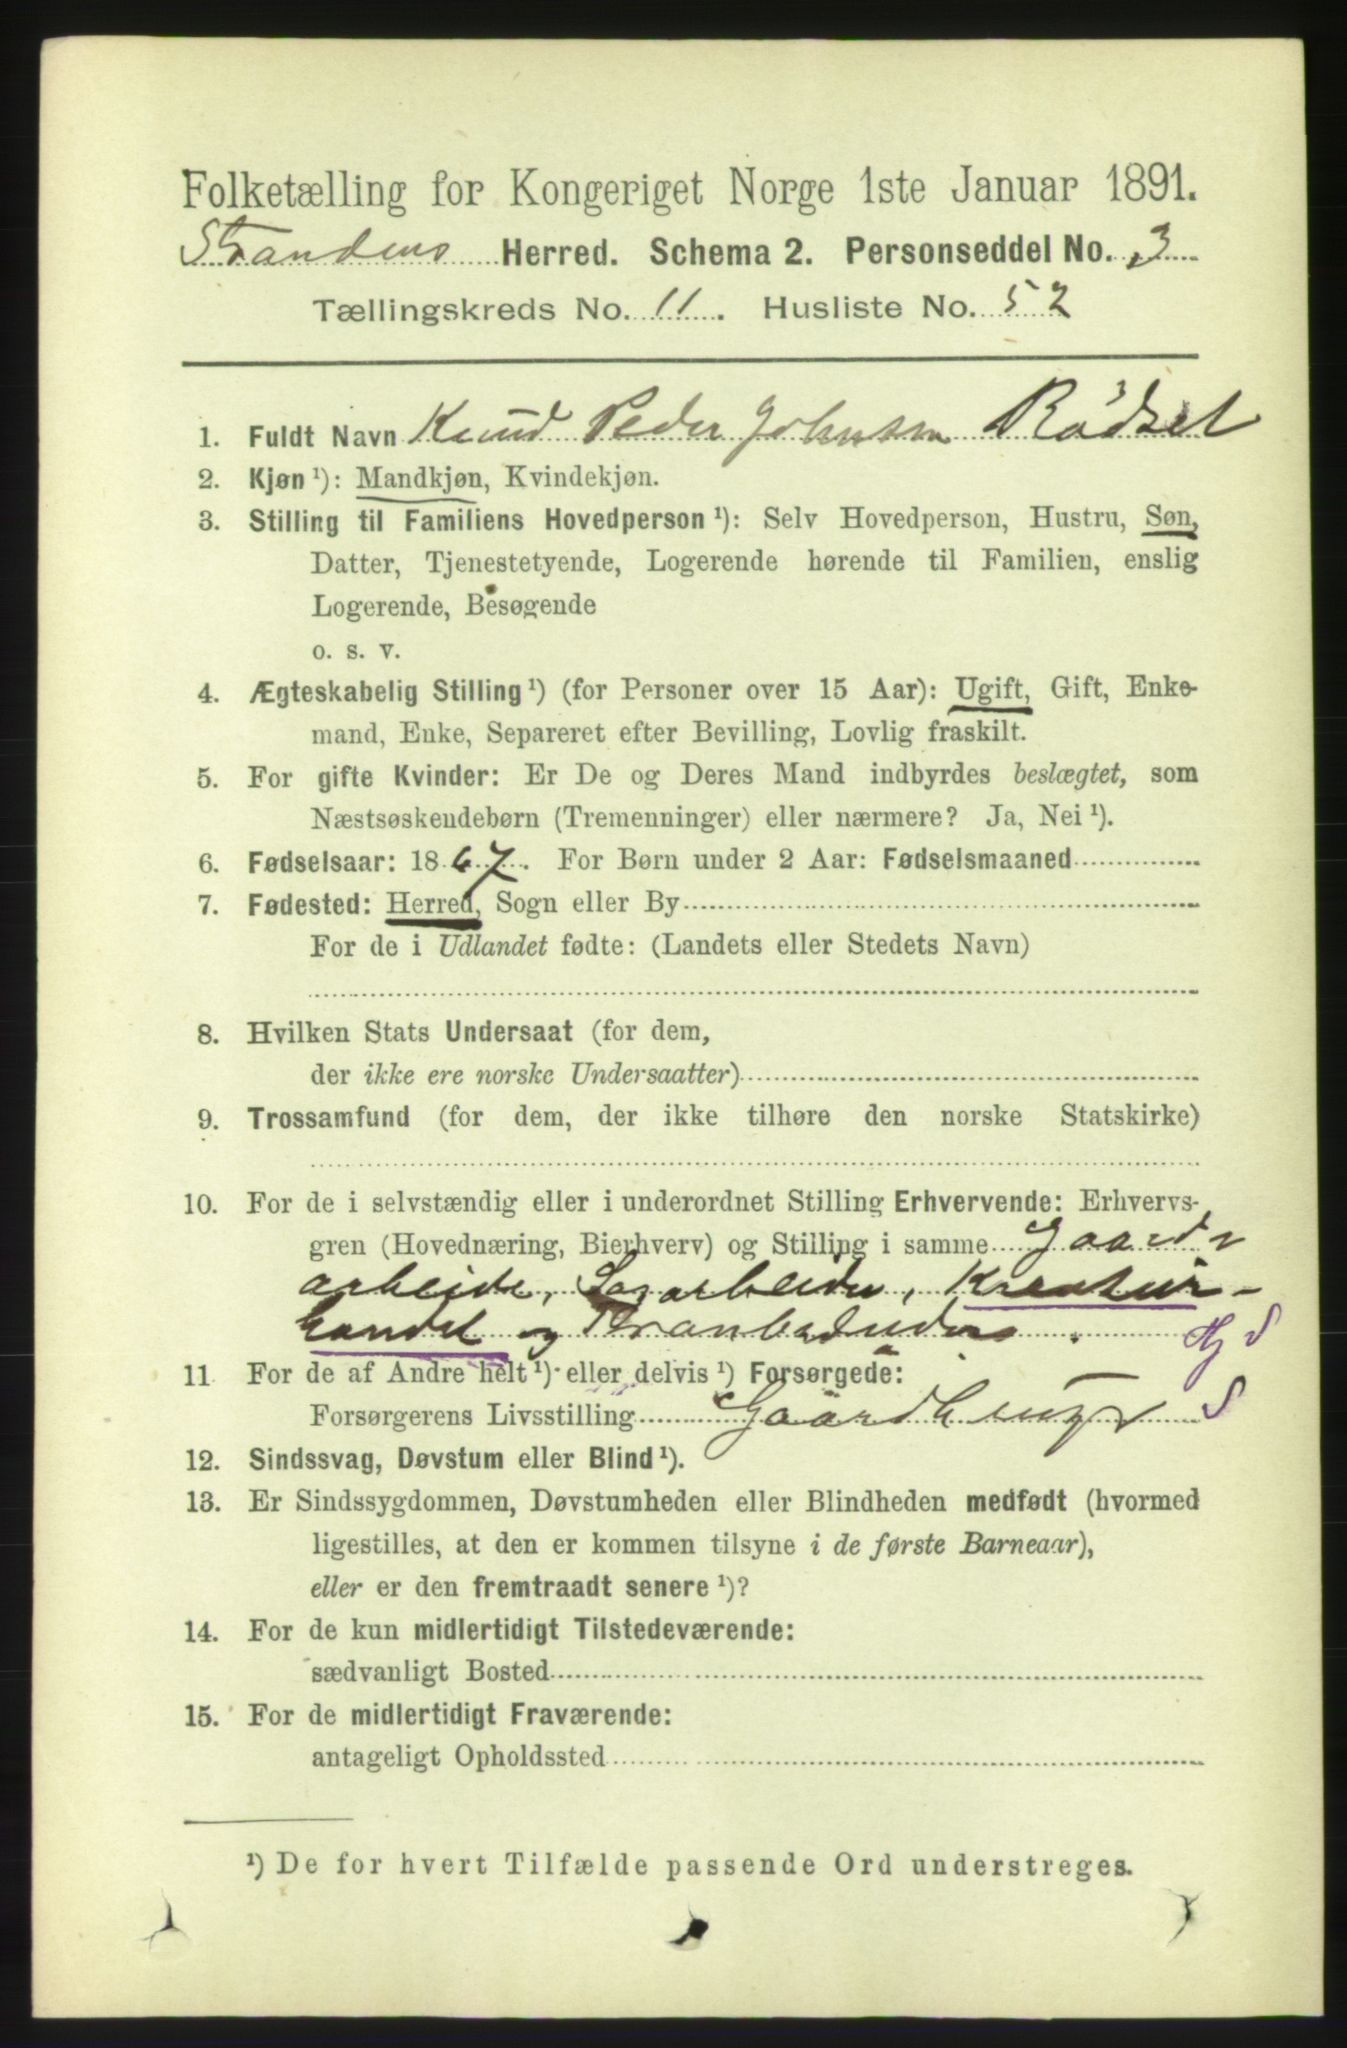 Folketælling for Kongeriget Norge 1ste Januar 1891.
Strandens Herred. Schema 2. Personseddel No. 3
Tællingskreds No. 11. Husliste No. 52
1. Fuldt Navn Knud Peder Johnsen Rödset
2. Kjøn ¹): Mandkjøn, Kvindekjøn.
3. Stilling til Familiens Hovedperson ¹): Selv Hovedperson, Hustru, Søn,
Datter, Tjenestetyende, Logerende hørende til Familien, enslig
Logerende, Besøgende
o. s. v.
4. Ægteskabelig Stilling ¹) (for Personer over 15 Aar): Ugift, Gift, Enke-
mand, Enke, Separeret efter Bevilling, Lovlig fraskilt.
5. For gifte Kvinder: Er De og Deres Mand indbyrdes beslægtet, som
Næstsøskendebørn (Tremenninger) eller nærmere? Ja, Nei ¹).
6. Fødselsaar: 1867. For Børn under 2 Aar: Fødselsmaaned
7. Fødested: Herred, Sogn eller By
For de i Udlandet fødte: (Landets eller Stedets Navn)
8. Hvilken Stats Undersaat (for dem,
der ikke ere norske Undersaatter)
9. Trossamfund (for dem, der ikke tilhøre den norske Statskirke)
10. For de i selvstændig eller i underordnet Stilling Erhvervende: Erhvervs-
gren (Hovednæring, Bierhverv) og Stilling i samme Gaards
arbeide, Sagarbeider, Kreatur-
handel og
11 For de af Andre helt ¹) eller delvis ¹) Forsørgede:
Forsørgerens Livsstilling Gaardbruger S
12. Sindssvag, Døvstum eller Blind ¹).
13. Er Sindssygdommen, Døvstumheden eller Blindheden medfødt (hvormed
ligestilles, at den er kommen tilsyne i de første Barneaar),
eller er den fremtraadt senere ¹)?
14. For de kun midlertidigt Tilstedeværende:
sædvanligt Bosted
15. For de midlertidigt Fraværende:
antageligt Opholdssted
¹) De for hvert Tilfælde passende Ord understreges.